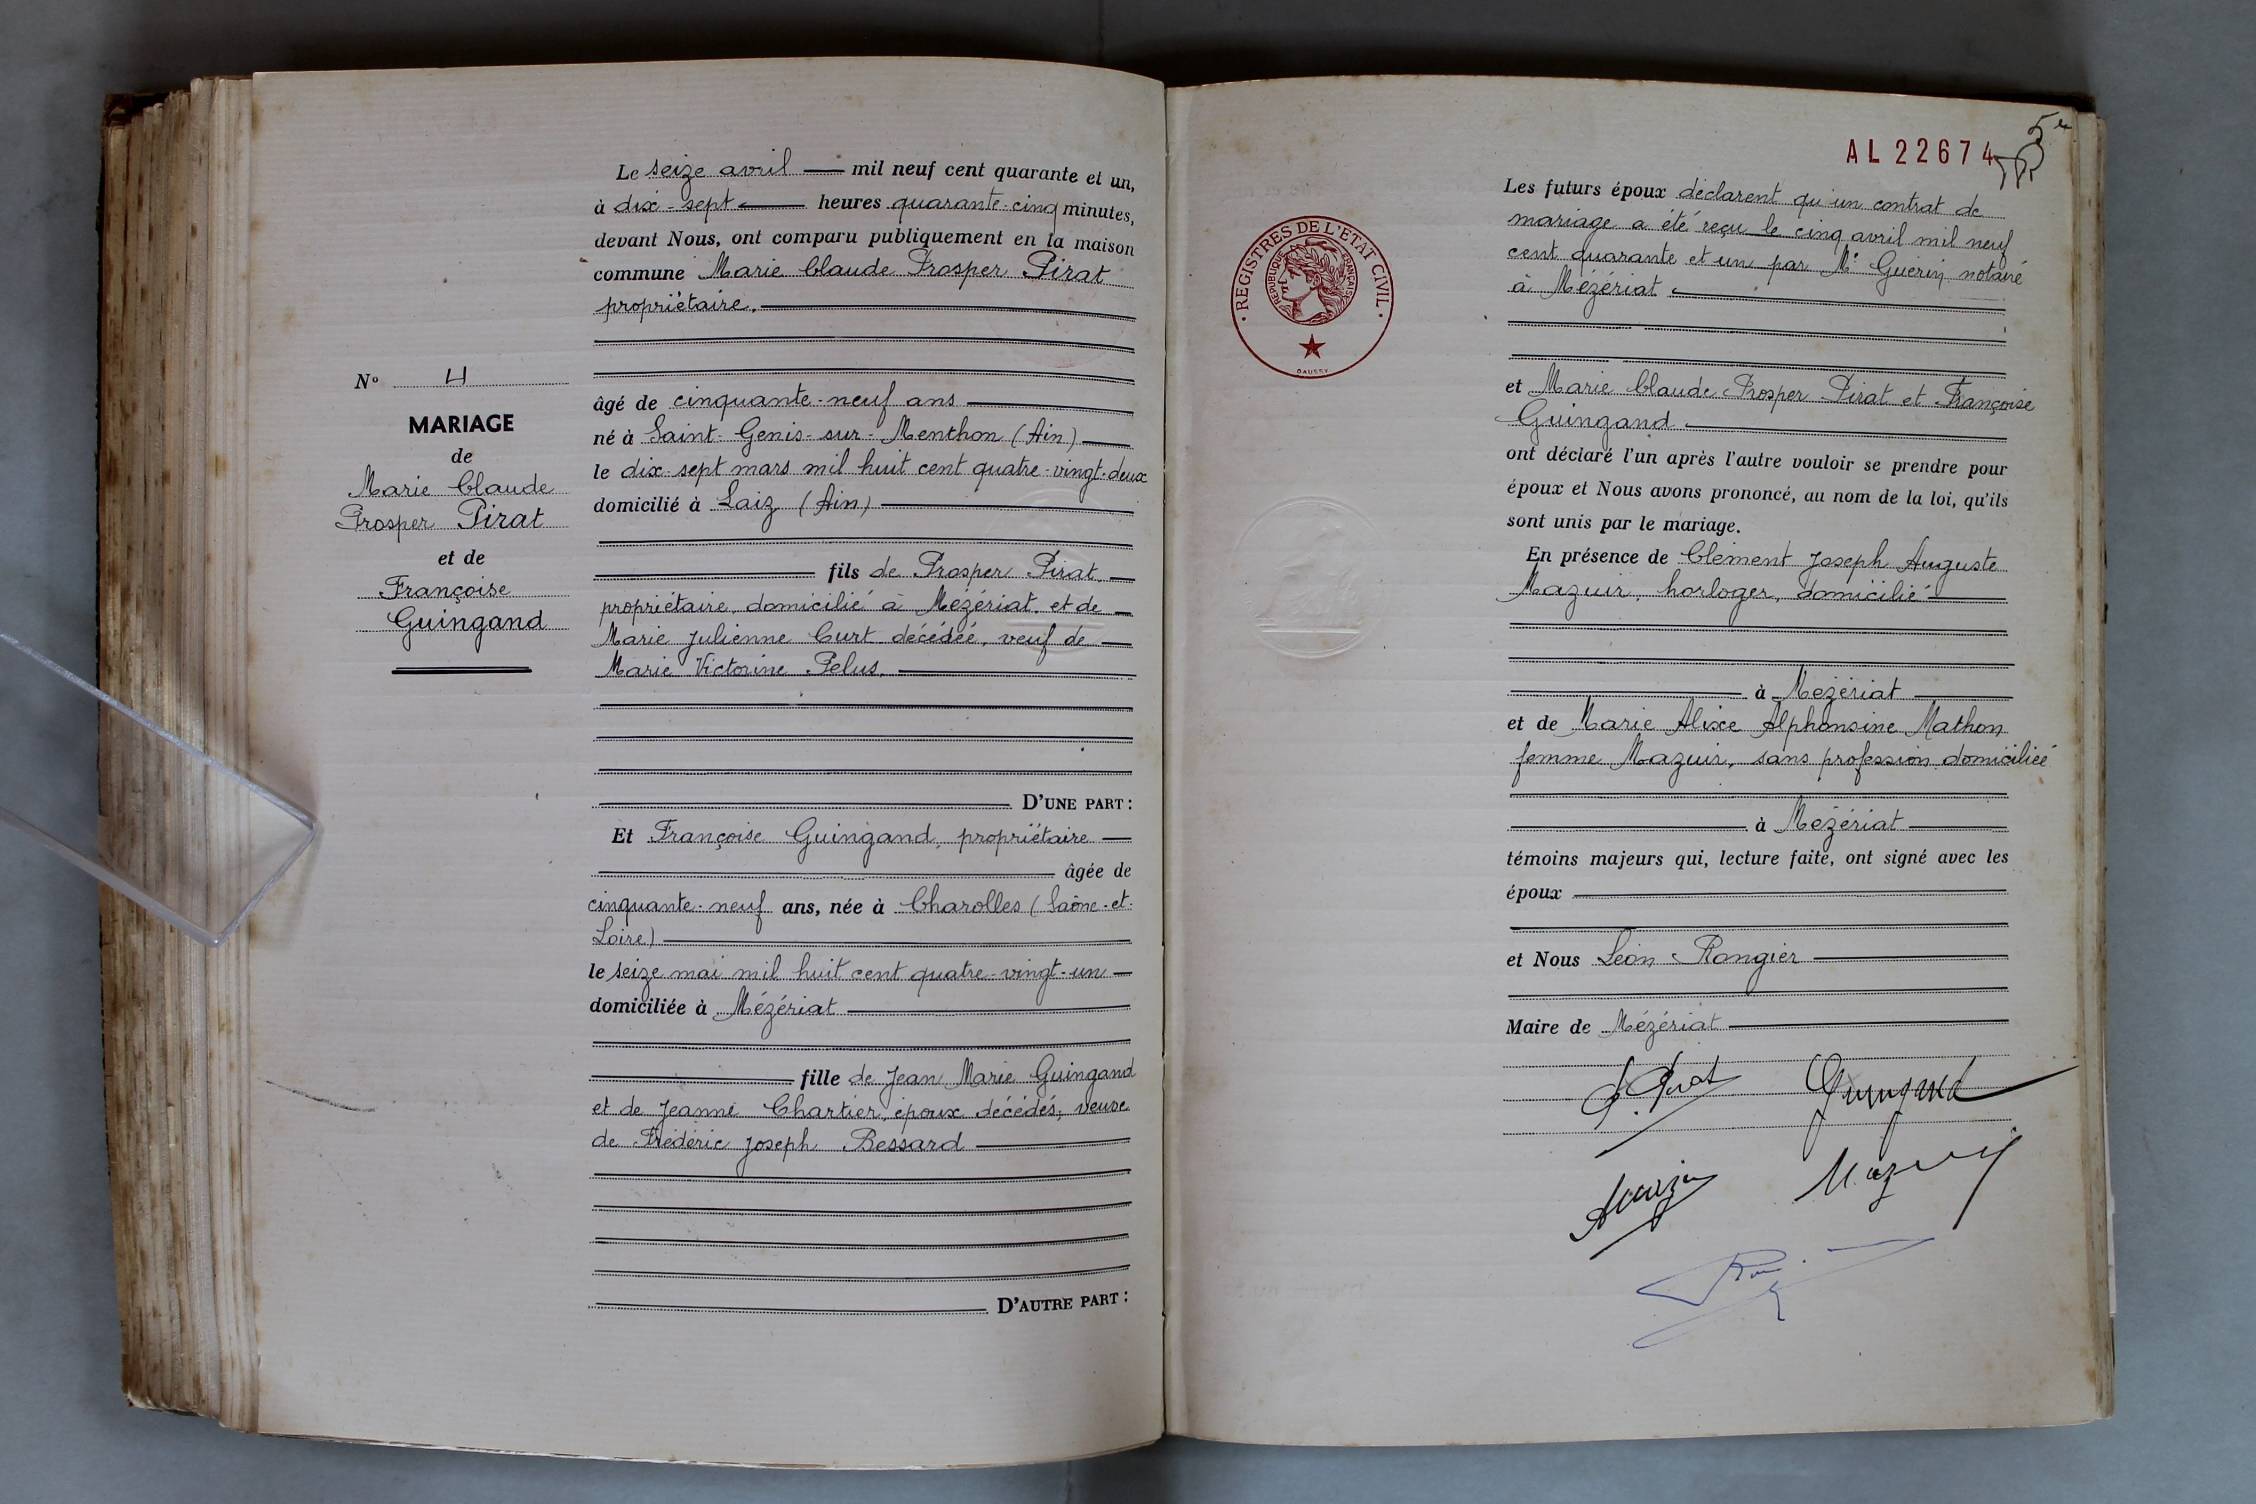 Le seize avril mil neuf cent quarante et un,
à dix-sept heures quarante-cinq minutes,
devant Nous, ont comparu publiquement en la maison
commune Marie Claude Prosper Pirat
propriétaire.
âgé de cinquante-neuf ans
né à Saint-Genis-sur-Menthon (Ain)
le dix-sept mars mil huit cent quatre-vingt-deux
domicilié à Laiz (Ain)
fils de Prosper Pirat
propriétaire, domicilié à Mézériat et de
Marie Julienne Curt décédée, veuf de
Marie Victorine Pelus.
D'UNE PART :
Et Françoise Guingand, propriétaire
âgée de
cinquante-neuf ans, née à Charolles (Saône-et-
Loire)
le seize mai mil huit cent quatre-vingt-un
domiciliée à Mézériat
fille de Jean Marie Guingand
et de Jeanne Chartier, époux décédés, veuve
de Frédéric Joseph Bessard
D'AUTRE PART :
No 4
MARIAGE
de
Marie Claude
Prosper Pirat
et de
Françoise
Guingand
AL 22674
5e
REGISTRES DE L'ETAT CIVIL
REPUBLIQUE FRANÇAISE
DAUSSY
Les futurs époux déclarent qu'un contrat de
mariage a été reçu le cinq avril mil neuf
cent quarante et un par Me Guérin notaire
à Mézériat
et Marie Claude Prosper Pirat et Françoise
Guingand
ont déclaré l'un après l'autre vouloir se prendre pour
époux et Nous avons prononcé, au nom de la loi, qu'ils
sont unis par le mariage.
En présence de Clément Joseph Auguste
Mazuir, horloger, domicilié
à Mézériat
et de Marie Alixe Alphonsine Mathon
femme Mazuir, sans profession domiciliée
à Mézériat
témoins majeurs qui, lecture faite, ont signé avec les
époux
et Nous Léon Rongier
Maire de Mézériat
P. Pirat
Guingand
Mazuir